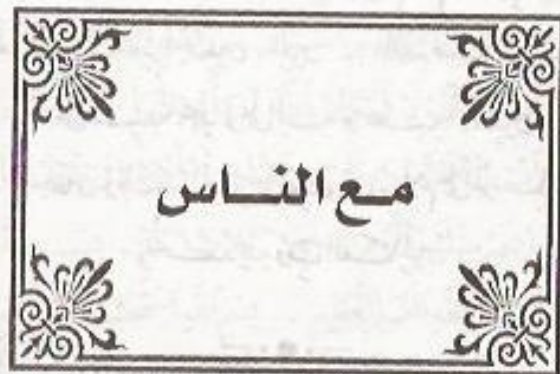 مع الناس